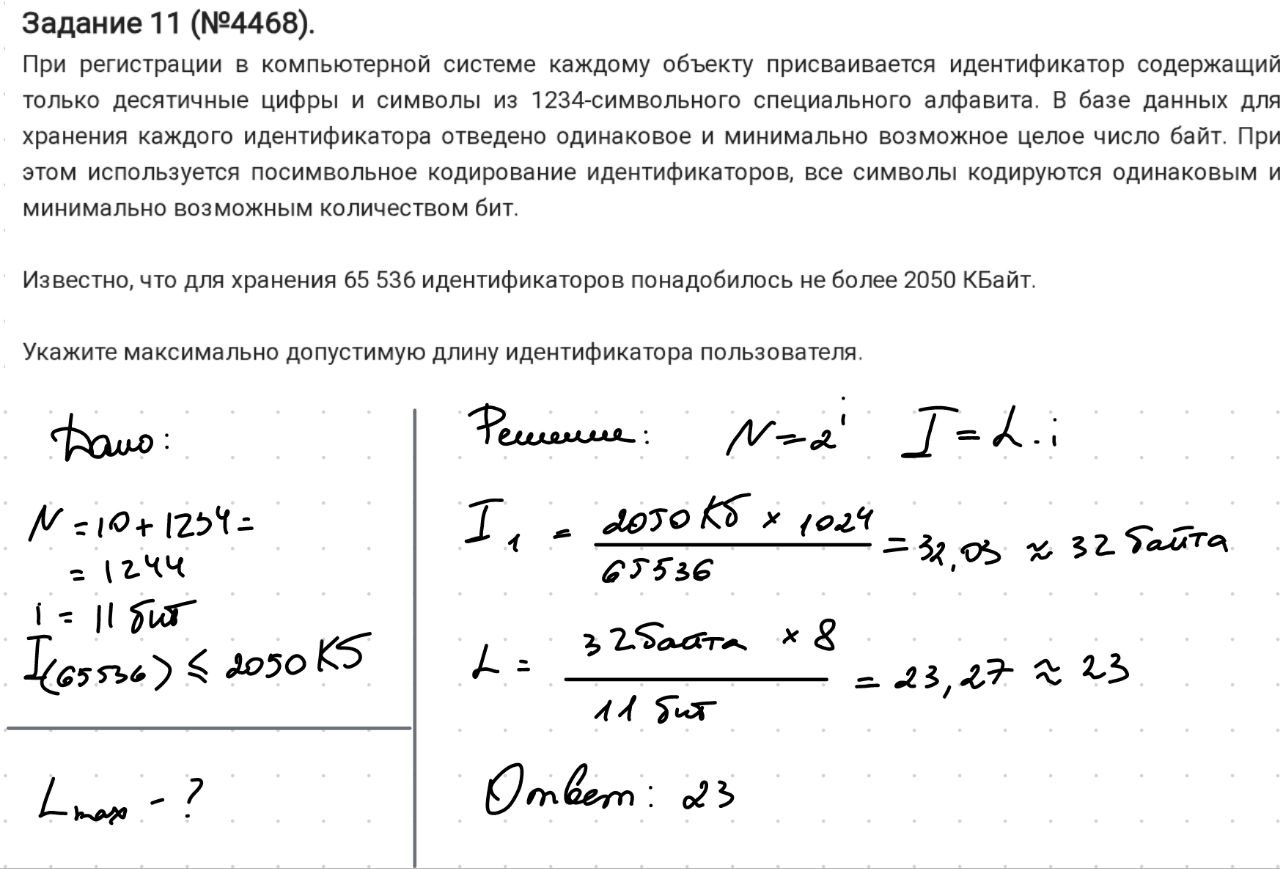 Задание 11 (№4468).
При регистрации в компьютерной системе каждому объекту присваивается идентификатор содержащий
только десятичные цифры и символы из 1234-символьного специального алфавита. В базе данных для
хранения каждого идентификатора отведено одинаковое и минимально возможное целое число байт. При
этом используется посимвольное кодирование идентификаторов, все символы кодируются одинаковым и
минимально возможным количеством бит.
Известно, что для хранения 65 536 идентификаторов понадобилось не более 2050 КБайт.
Укажите максимально допустимую длину идентификатора пользователя.
Дано:
N = 10 + 1234 =
= 1244
i = 11 бит
I(65536) ≤ 2050 Кб
L max - ?
Решение: N = 2^i I = L · i
I₁ = 2050 Кб × 1024 / 65536 = 32,03 ≈ 32 байта
L = 32 байта × 8 / 11 бит = 23,27 ≈ 23
Ответ: 23